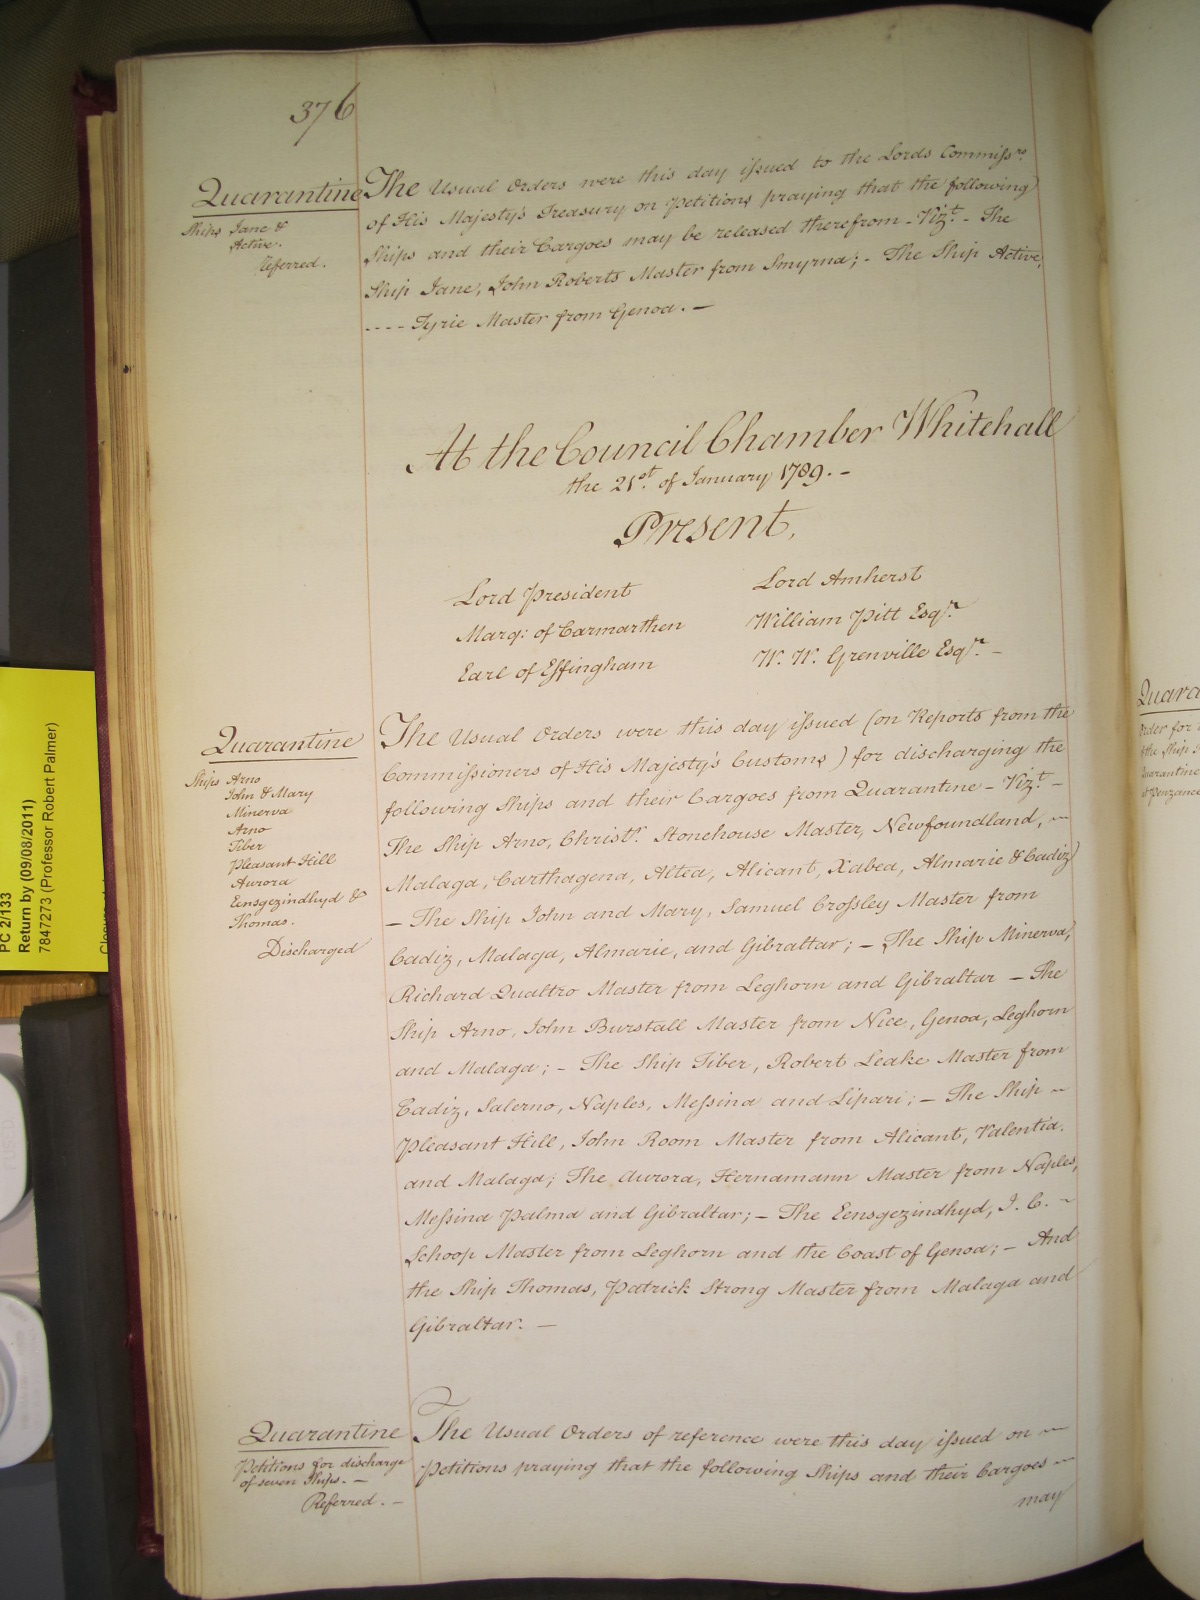 376
Quarantine
Ships Jane &
Active.
Referred.
The Usual Orders were this day issued to the Lords Commissrs.
of His Majesty's Treasury on Petitions praying that the following
Ships and their Cargoes may be released therefrom - Vizt. - The
Ship Jane, John Roberts Master from Smyrna; - The Ship Active,
---- Tyrie Master from Genoa. -
At the Council Chamber Whitehall
the 21st. of January 1789. -
Present,
Lord President
Marq: of Carmarthen
Earl of Effingham
Lord Amherst
William Pitt Esqr.
W. W. Grenville Esqr. -
Quarantine
Ships Arno
John & Mary
Minerva
Arno
Tiber
Pleasant Hill
Aurora
Eensgezindhyd &
Thomas.
Discharged
The Usual Orders were this day issued (on Reports from the
Commissioners of His Majesty's Customs) for discharging the
following Ships and their Cargoes from Quarantine - Vizt. -
The Ship Arno, Christr. Stonehouse Master, Newfoundland, ~
Malaga, Carthagena, Altea, Alicant, Xabea, Almarie & Cadiz
- The Ship John and Mary, Samuel Crossley Master from
Cadiz, Malaga, Almarie, and Gibraltar; - The Ship Minerva,
Richard Quattro Master from Leghorn and Gibraltar - The
Ship Arno, John Burstall Master from Nice, Genoa, Leghorn
and Malaga; - The Ship Tiber, Robert Leake Master from
Cadiz, Salerno, Naples, Messina and Lipari; - The Ship ~
Pleasant Hill, John Room Master from Alicant, Valentia.
and Malaga; The Aurora, Hernamann Master from Naples,
Messina Palma and Gibraltar; - The Eensgezindhyd, J. C. ~
Schoop Master from Leghorn and the Coast of Genoa; - And
the Ship Thomas, Patrick Strong Master from Malaga and
Gibraltar. -
Quarantine
Petitions for discharge
of seven Ships. -
Referred. -
The Usual Orders of reference were this day issued on ~
Petitions praying that the following Ships and their Cargoes ~
may
PC 2/133
Return by (09/08/2011)
7847273 (Professor Robert Palmer)
Quara
Order for
the Ship
Quarantine
at Penzance